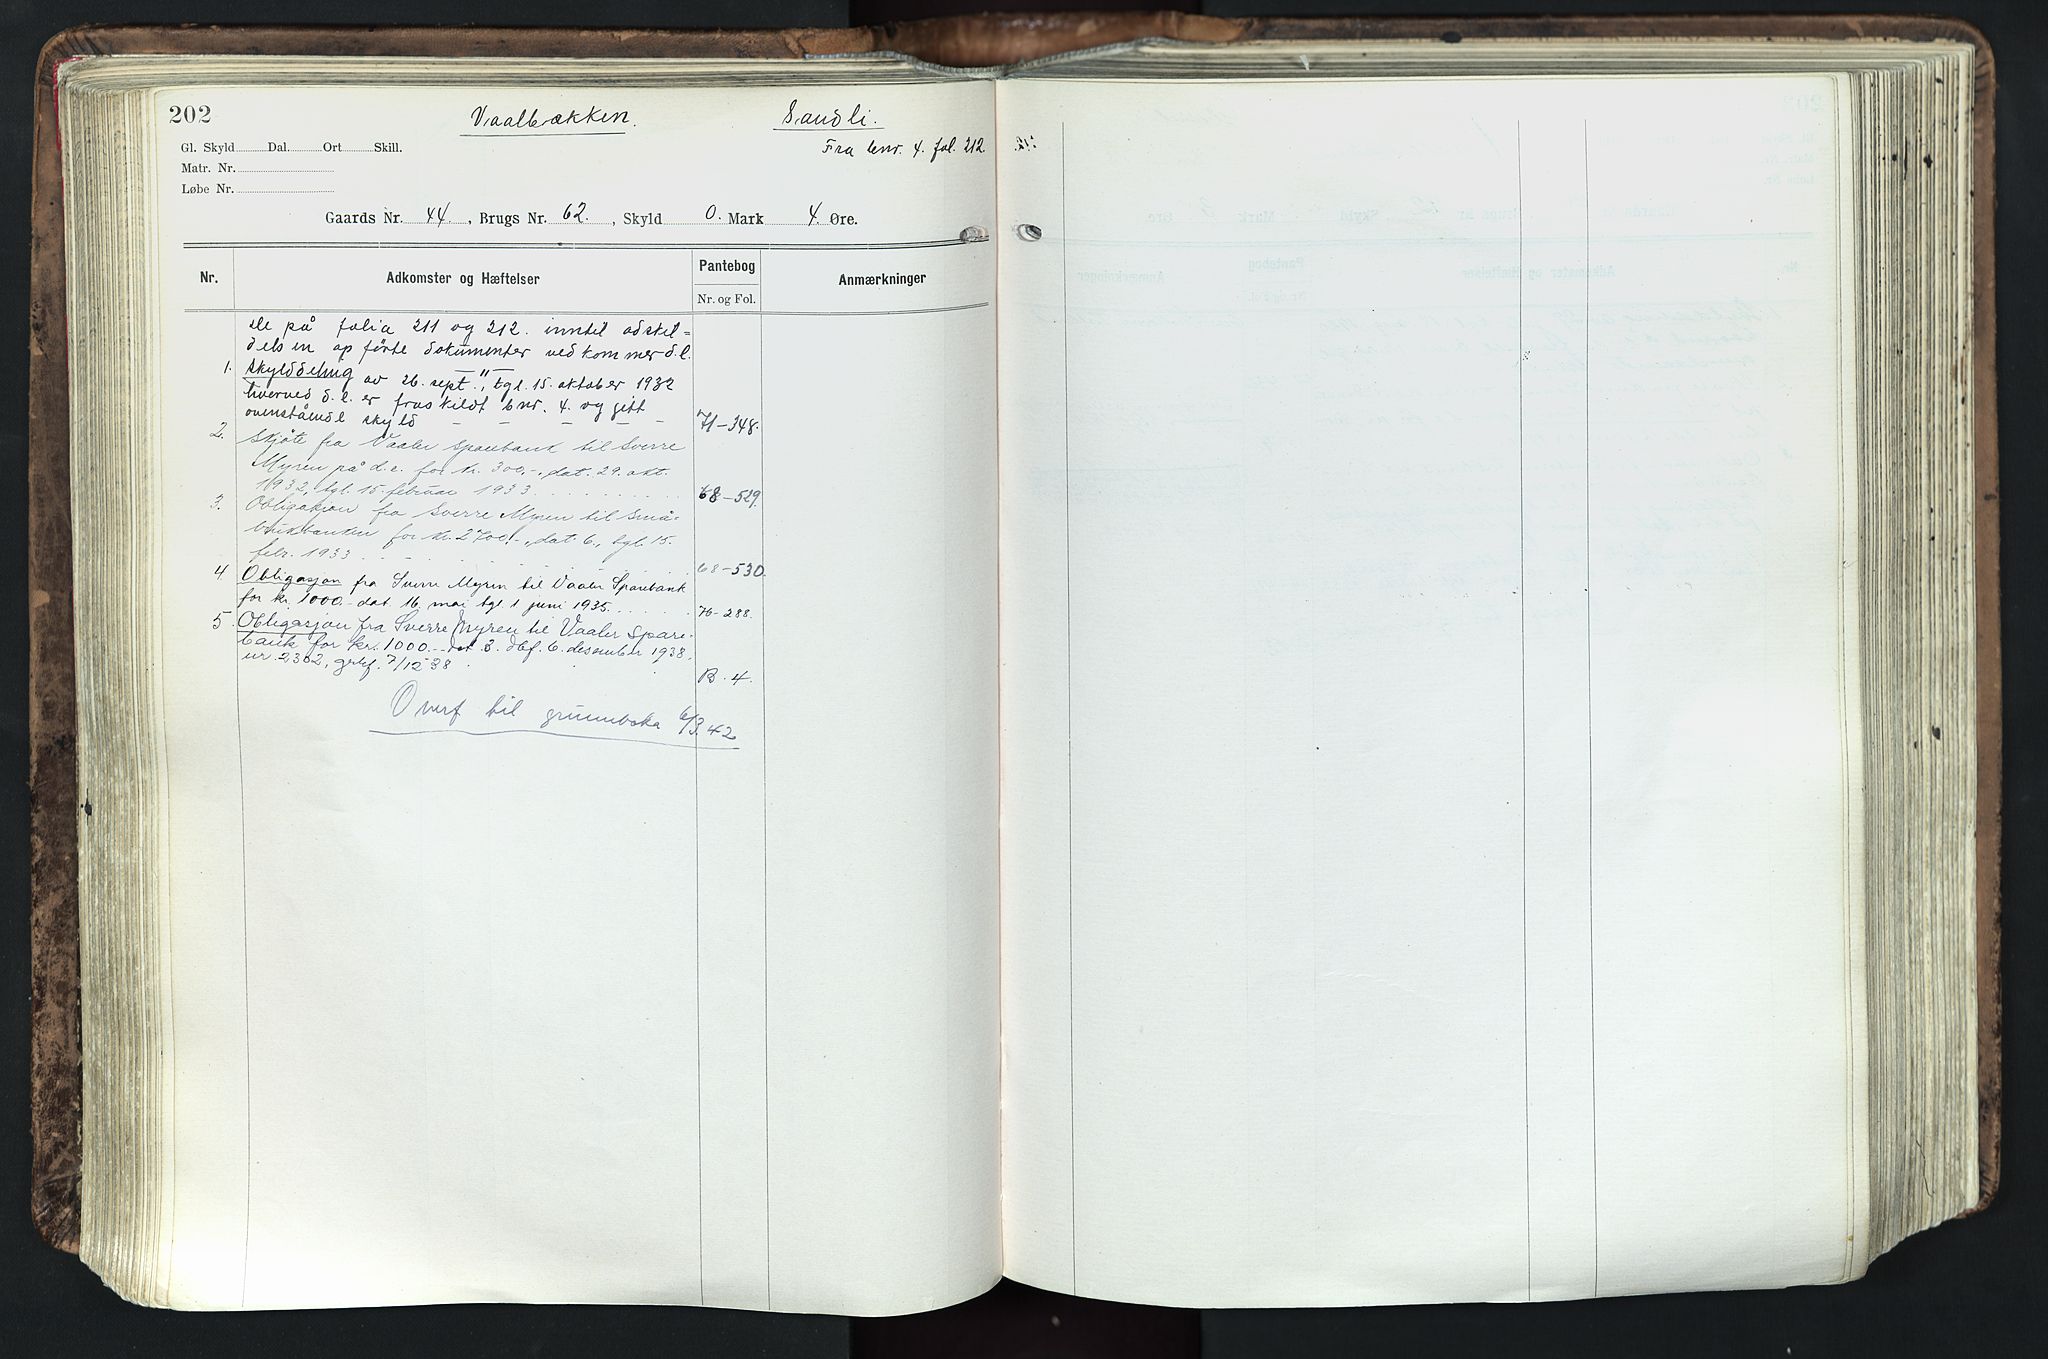 202
Vaalbækken. Sandli.
Fra bnr. 4. fol. 212
Gl. Skyld Dal. Ort Skill.
Matr. Nr.
Løbe Nr.
Gaards Nr. 44. , Brugs Nr. 62. , Skyld 0. Mark 4. Øre.
Nr. Adkomster og Hæftelser Pantebog Anmærkninger
Nr. og Fol.
De på folia 211 og 212. inntil adskil=
delsen op førte dokumenter vedkommer d.e.
1. Skylddeling av 26. sept., tgl. 15. oktober 1932
hvorved d.e. er fraskildt bnr. 4. og gitt
ovenstående skyld - - - - - 71-348.
2. Skjøte fra Vaaler Sparebank til Sverre
Myren på d.e. for kr. 300.-, dat. 29. okt.
1932, tgl. 15. februar 1933 . . . . . 68-529.
3. Obligasjon fra Sverre Myren til Små=
brukbanken for kr. 2700.-, dat. 6., tgl. 15.
febr. 1933 . . . . . 68-530.
4. Obligasjon fra Sverre Myren til Vaaler Sparebank
for kr. 1000.- dat 16. mai tgl. 1 juni 1935. . . . . 76-288.
5. Obligasjon fra Sverre Myren til Vaaler Spare-
bank for kr. 1000.- dat 3. dbf. 6. desember 1938,
nr. 2302, 7/12-38 B. 4.
Overf til grunnboka 6/3.42